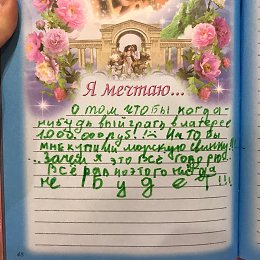 Я мечтаю...
О том чтобы когда-
нибудь выйграть в латерее
1000.000 руб! И чтобы
мне купили морскую свинку!!
..Зачем я это всё говорю.
Всё равно этого никогда
не будет
48